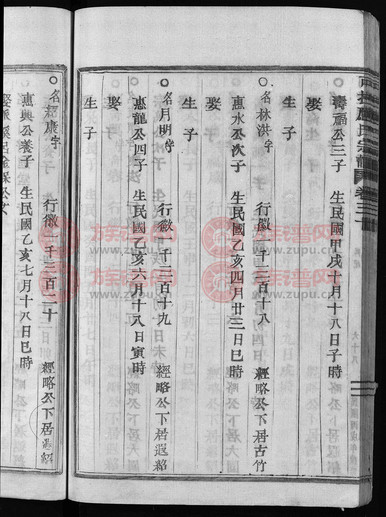 壽福公三子 生民國甲戌十月十八日子時
娶
生子
名林洪字 行徽一千三百十八 經略公下居古竹
惠水公次子 生民國乙亥四月廿三日巳時
娶
生子
名月明字 行徽一千三百十九 經略公下居遐紹
惠龍公四子 生民國乙亥六月十八日寅時
娶
生子
名 字 行徽一千三百二十 經略公下居遐紹
惠興公養子 生民國乙亥七月十八日巳時
娶
族谱网
www.zupu.cn